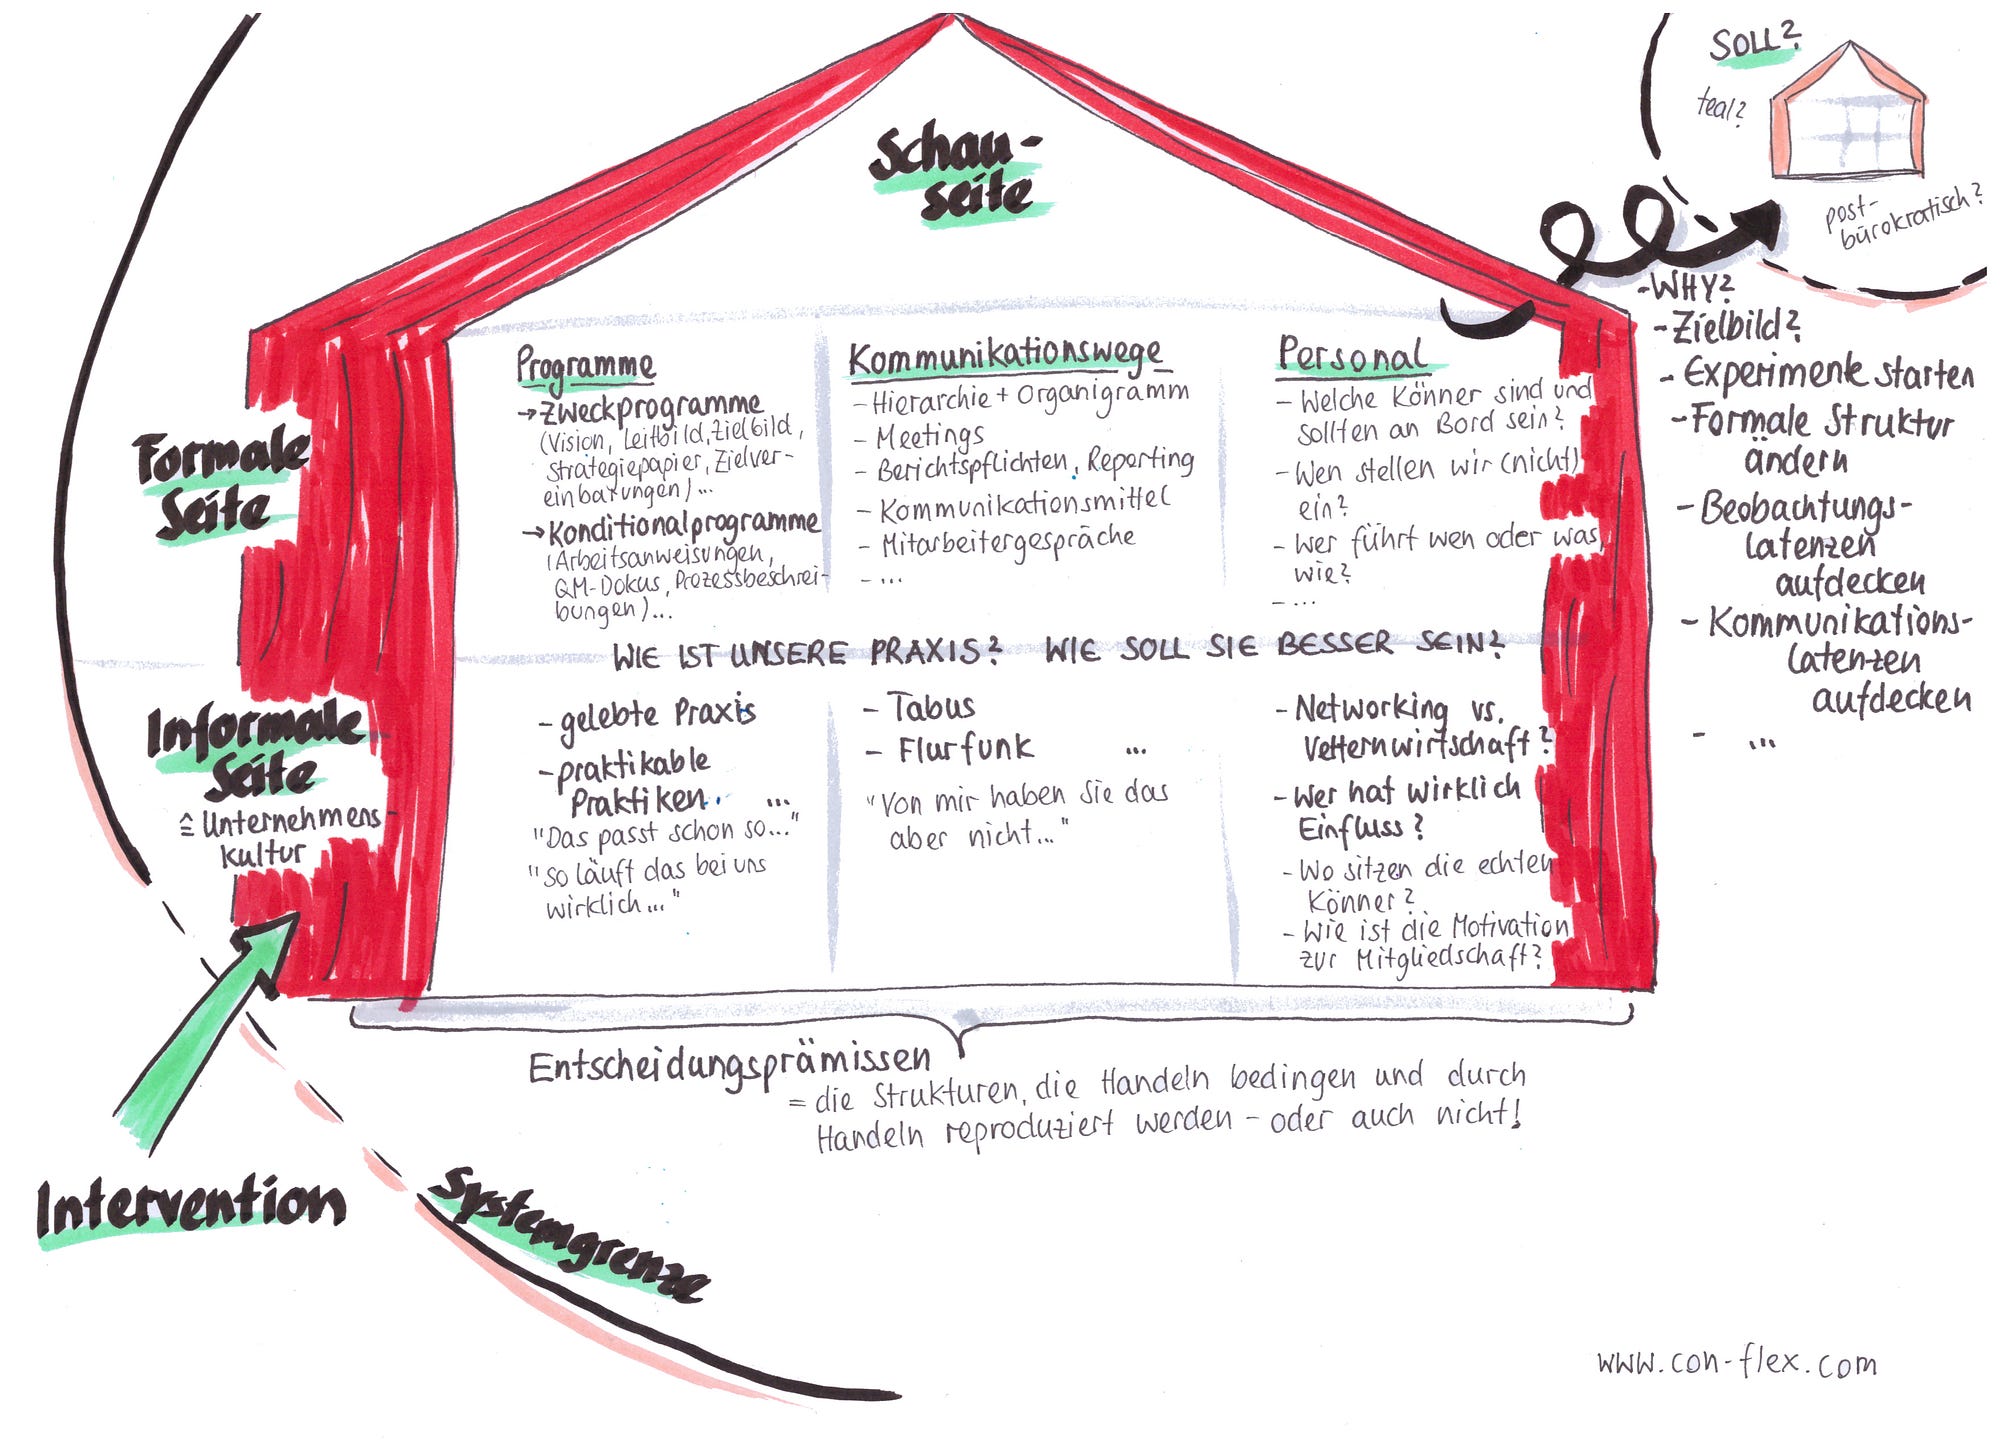 SOLL?
teal?
post-
bürokratisch?
Schau-
seite
Formale
Seite
Programme
→ Zweckprogramme
(Vision, Leitbild, Zielbild,
Strategiepapier, Zielver-
einbarungen)...
→ Konditionalprogramme
(Arbeitsanweisungen,
QM-Dokus, Prozessbeschrei-
bungen)...
Kommunikationswege
- Hierarchie + Organigramm
- Meetings
- Berichtspflichten, Reporting
- Kommunikationsmittel
- Mitarbeitergespräche
- ...
Personal
- Welche Könner sind und
sollten an Bord sein?
- Wen stellen wir (nicht)
ein?
- Wer führt wen oder was,
wie?
- ...
WIE IST UNSERE PRAXIS? WIE SOLL SIE BESSER SEIN?
Informale
Seite
≙ Unternehmens-
kultur
- gelebte Praxis
- praktikable
Praktiken.. ...
"Das passt schon so..."
"So läuft das bei uns
wirklich..."
- Tabus
- Flurfunk ...
"Von mir haben Sie das
aber nicht..."
- Networking vs.
Vetternwirtschaft?
- Wer hat wirklich
Einfluss?
- Wo sitzen die echten
Könner?
- Wie ist die Motivation
zur Mitgliedschaft?
- WHY?
- Zielbild?
- Experimente starten
- Formale Struktur
ändern
- Beobachtungs-
latenzen
aufdecken
- Kommunikations-
latenzen
aufdecken
- ...
Entscheidungsprämissen
= die Strukturen, die Handeln bedingen und durch
Handeln reproduziert werden - oder auch nicht!
Intervention
Systemgrenze
www.con-flex.com